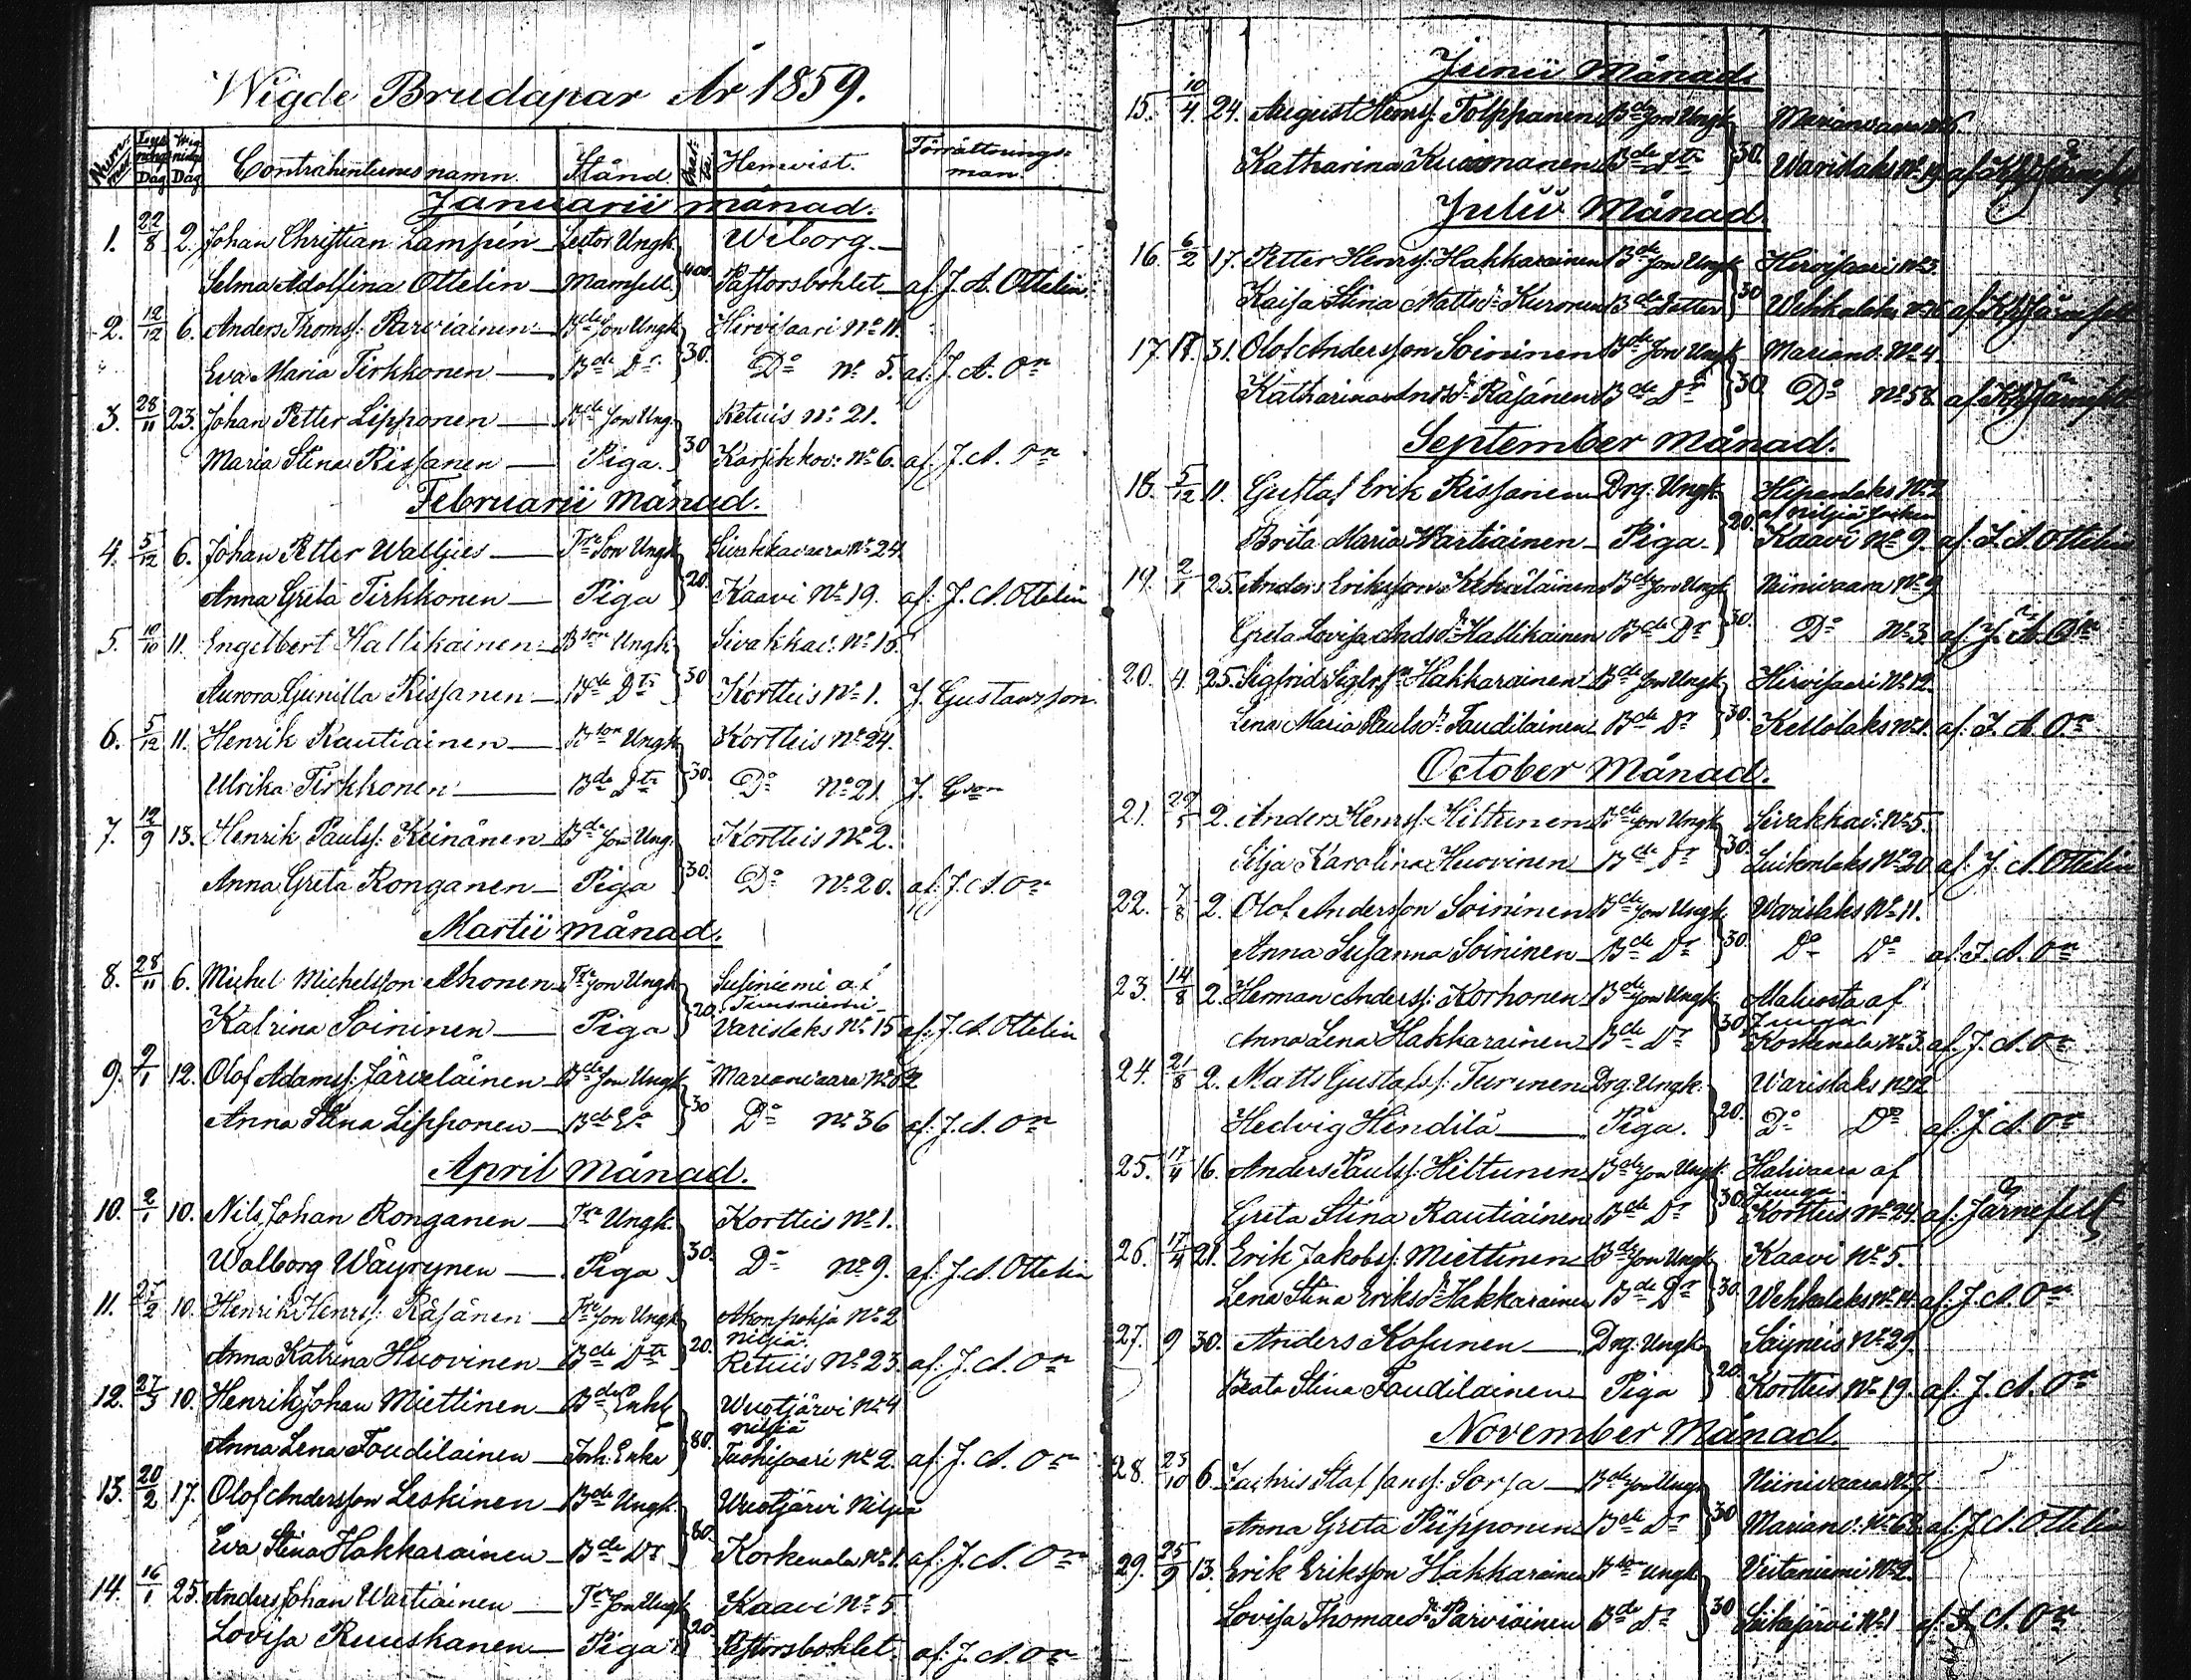 Wigde Brudapar År 1859.
Nummer Lysnings Dag Wignings Dag Contrahenternes namn. Stånd. Hemvist. Förrättningsman.
Januarii månad.
1. 22/8 2. Johan Christian Lampén Lector Ungk. Wiborg.
Selma Adolfina Ottelin Mamsell Pastorsbohlet af J. A. Ottelin.
2. 12/12 6. Anders Thomss: Parviainen Bde Son Ungk. Hirvisaari No 11.
Eva Maria Tirkkonen Bde Dr 30. Do No 5. af: J. A. On
3. 28/11 23. Johan Petter Lipponen Bde Son Ung. Retuis No 21.
Maria Stina Rissanen Piga. 30 Karsikkov: No 6. af: J. A. On
Februarii månad.
4. 5/12 6. Johan Petter Walljus Tre Son Ungk. Sivakkavaara No 24
Anna Greta Tirkkonen Piga 20. Kaavi No 19. af: J. A. Ottelin
5. 10/10 11. Engelbert Hallikainen Bson Ungk. Sivakkav: No 15.
Aurora Gunilla Rissanen Bde Dtr 30 Kortteis No 1. J. Gustavsson.
6. 5/12 11. Henrik Rautiainen Bson Ungk. Kortteis No 24.
Ulrika Tirkkonen Bde Dtr 30. Do No 21. J. Gson
7. 12/9 13. Henrik Paulss: Keinänen Bde Son Ung. Kortteis No 2.
Anna Greta Ronganen Piga 30. Do No 20. af: J. A. On
Martii månad.
8. 28/11 6. Michel Michelsson Ahonen Tre Son Ungk. Susiniemi af
Katrina Soininen Piga 20. Varislaks No 15 af: J. A. Ottelin
9. 9/1 12. Olof Adamss: Järveläinen Bde Son Ungk. Marianvaara
Anna Stina Lipponen 30 Do No 36 af: J. A. On
April månad.
10. 2/1 10. Nils Johan Ronganen Tre Ungk. Kortteis No 1.
Walborg Wäyrynen Piga 30. Do No 9. af: J. A. Ottelin
11. 27/2 10. Henrik Henrss: Räsänen Tre Son Ungk. No 2
nilsiä.
Anna Katrina Huovinen Bde Dtr 20. Retuis No 23. af: J. A. On
12. 27/3 10. Henrik Johan Miettinen Bde Enkl Wuotjärvi No 4
nilsiä
Anna Lena Toudilainen Inh. Enka 80. No 2. af: J. A. On
13. 20/2 17. Olof Andersson Leskinen Bde Ungk. Wuotjärvi Nilsiä
Eva Stina Hakkarainen Bde Dr 80. Korkenala No 1. af: J. A. On
14. 16/1 25. Anders Johan Wartiainen Tre Son Ungk Kaavi No 5
Lovisa Ruuskanen Piga 20. Pastorsbohlet. af: J. A. On
Junii Månad.
15. 10/4 24. August Henrss: Tolppanen Bde Son Ungk. Marianvaara
Katharina Kuosmanen Bde Dtr 30. Warislaks No 19 af Järnefelt
Julii Månad.
16. 6/2 17. Petter Henrss: Hakkarainen Bde Son Ungk Hirvisaari No 3.
Kaisa Stina Mattsdr Kuronen Bde Dotter 30 Wehkalaks af Järnefelt
17. 31. Olof Andersson Soininen Bde Son Ungk Marianv: No 4.
Katharina Andsdr Räsänen Bde Dr 30. Do No 58. af Järnefelt
September Månad.
18. 5/12 11. Gustaf Erik Rissanen Drg: Ungk. No 2
af Nilsiä Socken
Brita Maria Wartiainen Piga. 20. Kaavi No 9. af. J. A. Ottelin
19. 2/1 25. Anders Eriksson Kekäläinen Bde Son Ungk Niinivaara No 9
Greta Lovisa Andsdr Hallikainen Bde Dr 30. Do No 3. af J. A. On
20. 4. 25. Sigfrid Hakkarainen Bde Son Ungk. Hirvisaari No 12.
Lena Maria Paulsdr Toudilainen Bde Dr 30. Kellolaks No 1. af: J. A. On
October Månad.
21. 2. Anders Henrss: Hiltunen Bde Son Ungk Sivakkav: No 5.
Silja Karolina Huovinen Bde Dr 30. Luikonlaks No 20. af: J. A. Ottelin
22. 7/8 2. Olof Andersson Soininen Bde Son Ungk. Warislaks No 11.
Anna Susanna Soininen Bde Dr 30. Do Do af: J. A. On
23. 14/8 2. Herman Anderss: Korhonen Bde Son Ungk. af
Juuga
Anna Lena Hakkarainen Bde Dr 30 Korkenala No 3. af: J. A. On
24. 21/8 2. Matts Gustafss: Turunen Drg: Ungk. Warislaks No 12
Hedvig Hindilä Piga. 20. Do Do af: J. A. On
25. 17/4 16. Anders Paulss: Hiltunen Bde Son Ungk. Halivaara af
Juuga
Greta Stina Rautiainen Bde Dr 30. Kortteis No 24. af: Järnefelt
26. 17/4 21. Erik Jakobss: Miettinen Bde Son Ungk Kaavi No 5.
Lena Stina Eriksdr Hakkarainen Bde Dr 30. Wehkalaks No 14. af: J. A. On
27. 9 30. Anders Kosunen Drg: Ungk Säyneis No 29.
Beata Stina Toudilainen Piga 20. Kortteis No 19. af: J. A. On
November Månad.
28. 23/10 6. Zachris Staffanss: Sorsa Bde Son Ungk Niinivaara
Anna Greta Piipponen Bde Dr 30 Marianv: No 63. af: J. A. Ottelin
29. 25/9 13. Erik Eriksson Hakkarainen Bson Ungk Viitaniemi No 2.
Lovisa Thomaedr Parviainen Bde Dr 30 Siikajärvi No 1 af: J. A. On